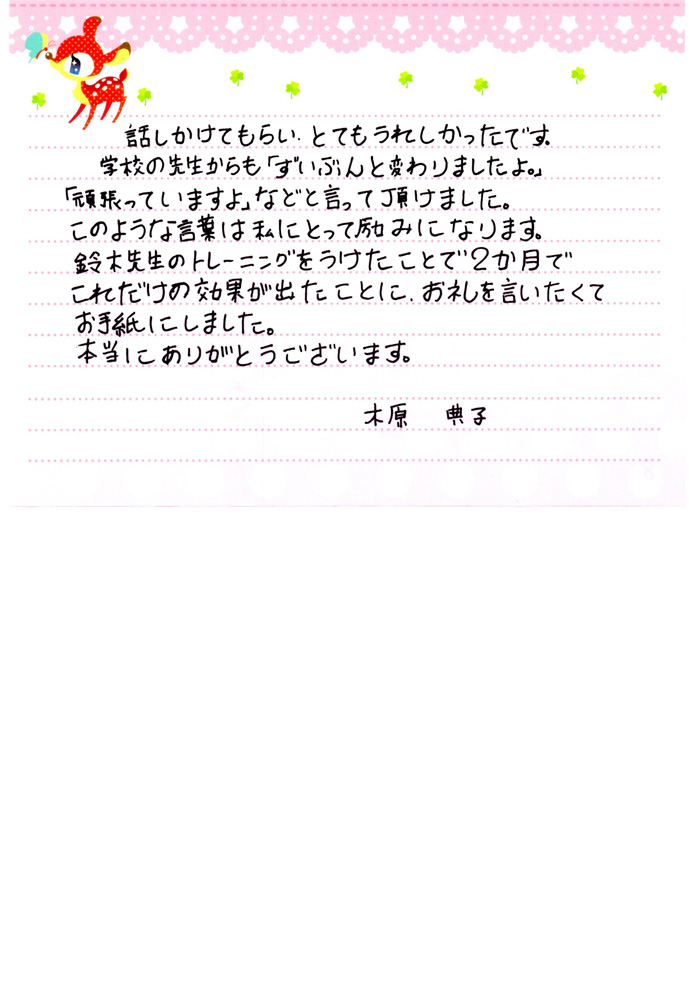 話しかけてもらい、とてもうれしかったです。
学校の先生からも「ずいぶんと変わりましたよ。」
「頑張っていますよ」などと言って頂けました。
このような言葉は私にとって励みになります。
鈴木先生のトレーニングをうけたことで2か月で
これだけの効果が出たことに、お礼を言いたくて
お手紙にしました。
本当にありがとうございます。
木原 典子